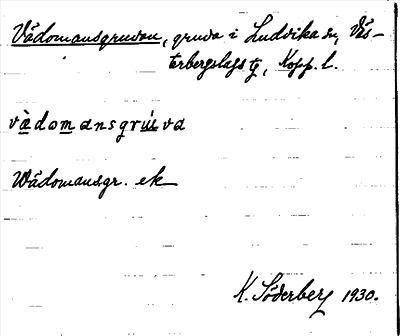 Vådomansgruvan, gruva i Ludvika sn, Väs-
terbergslags tg, Kopp. l.
vå̀domansgrú̀va
Wådomansgr. ek
K. Söderberg 1930.